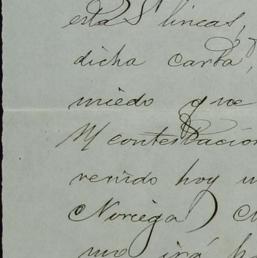 estas lineas,
dicha carta,
miedo que
contestacion
venido hoy
Noriega)
me irá